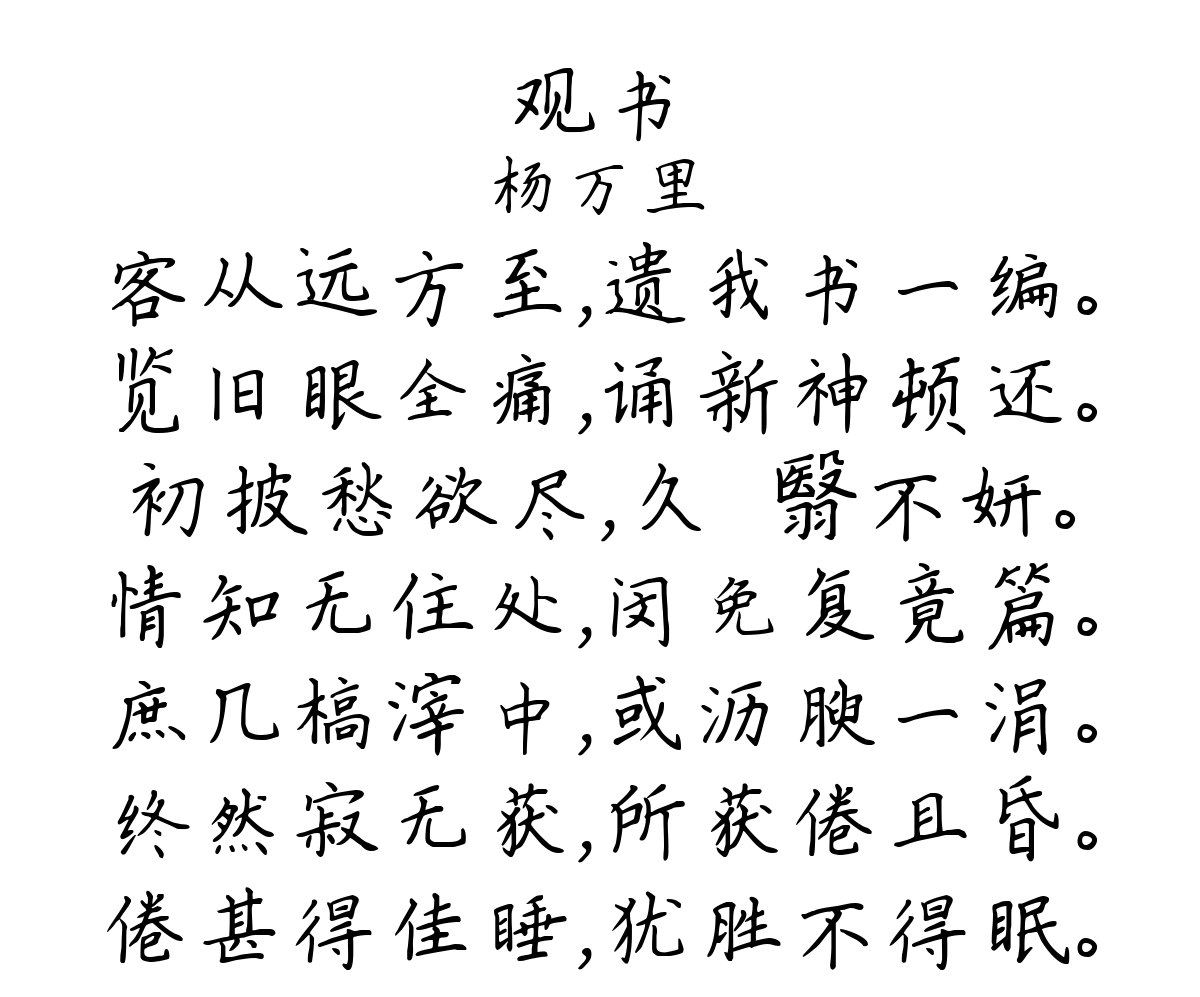 观书
杨万里
客从远方至,遗我书一编。
览旧眼全痛,诵新神顿还。
初披愁欲尽,久 翳不妍。
情知无住处,闵免复竟篇。
庶几槁滓中,或沥腴一涓。
终然寂无获,所获倦且昏。
倦甚得佳睡,犹胜不得眠。